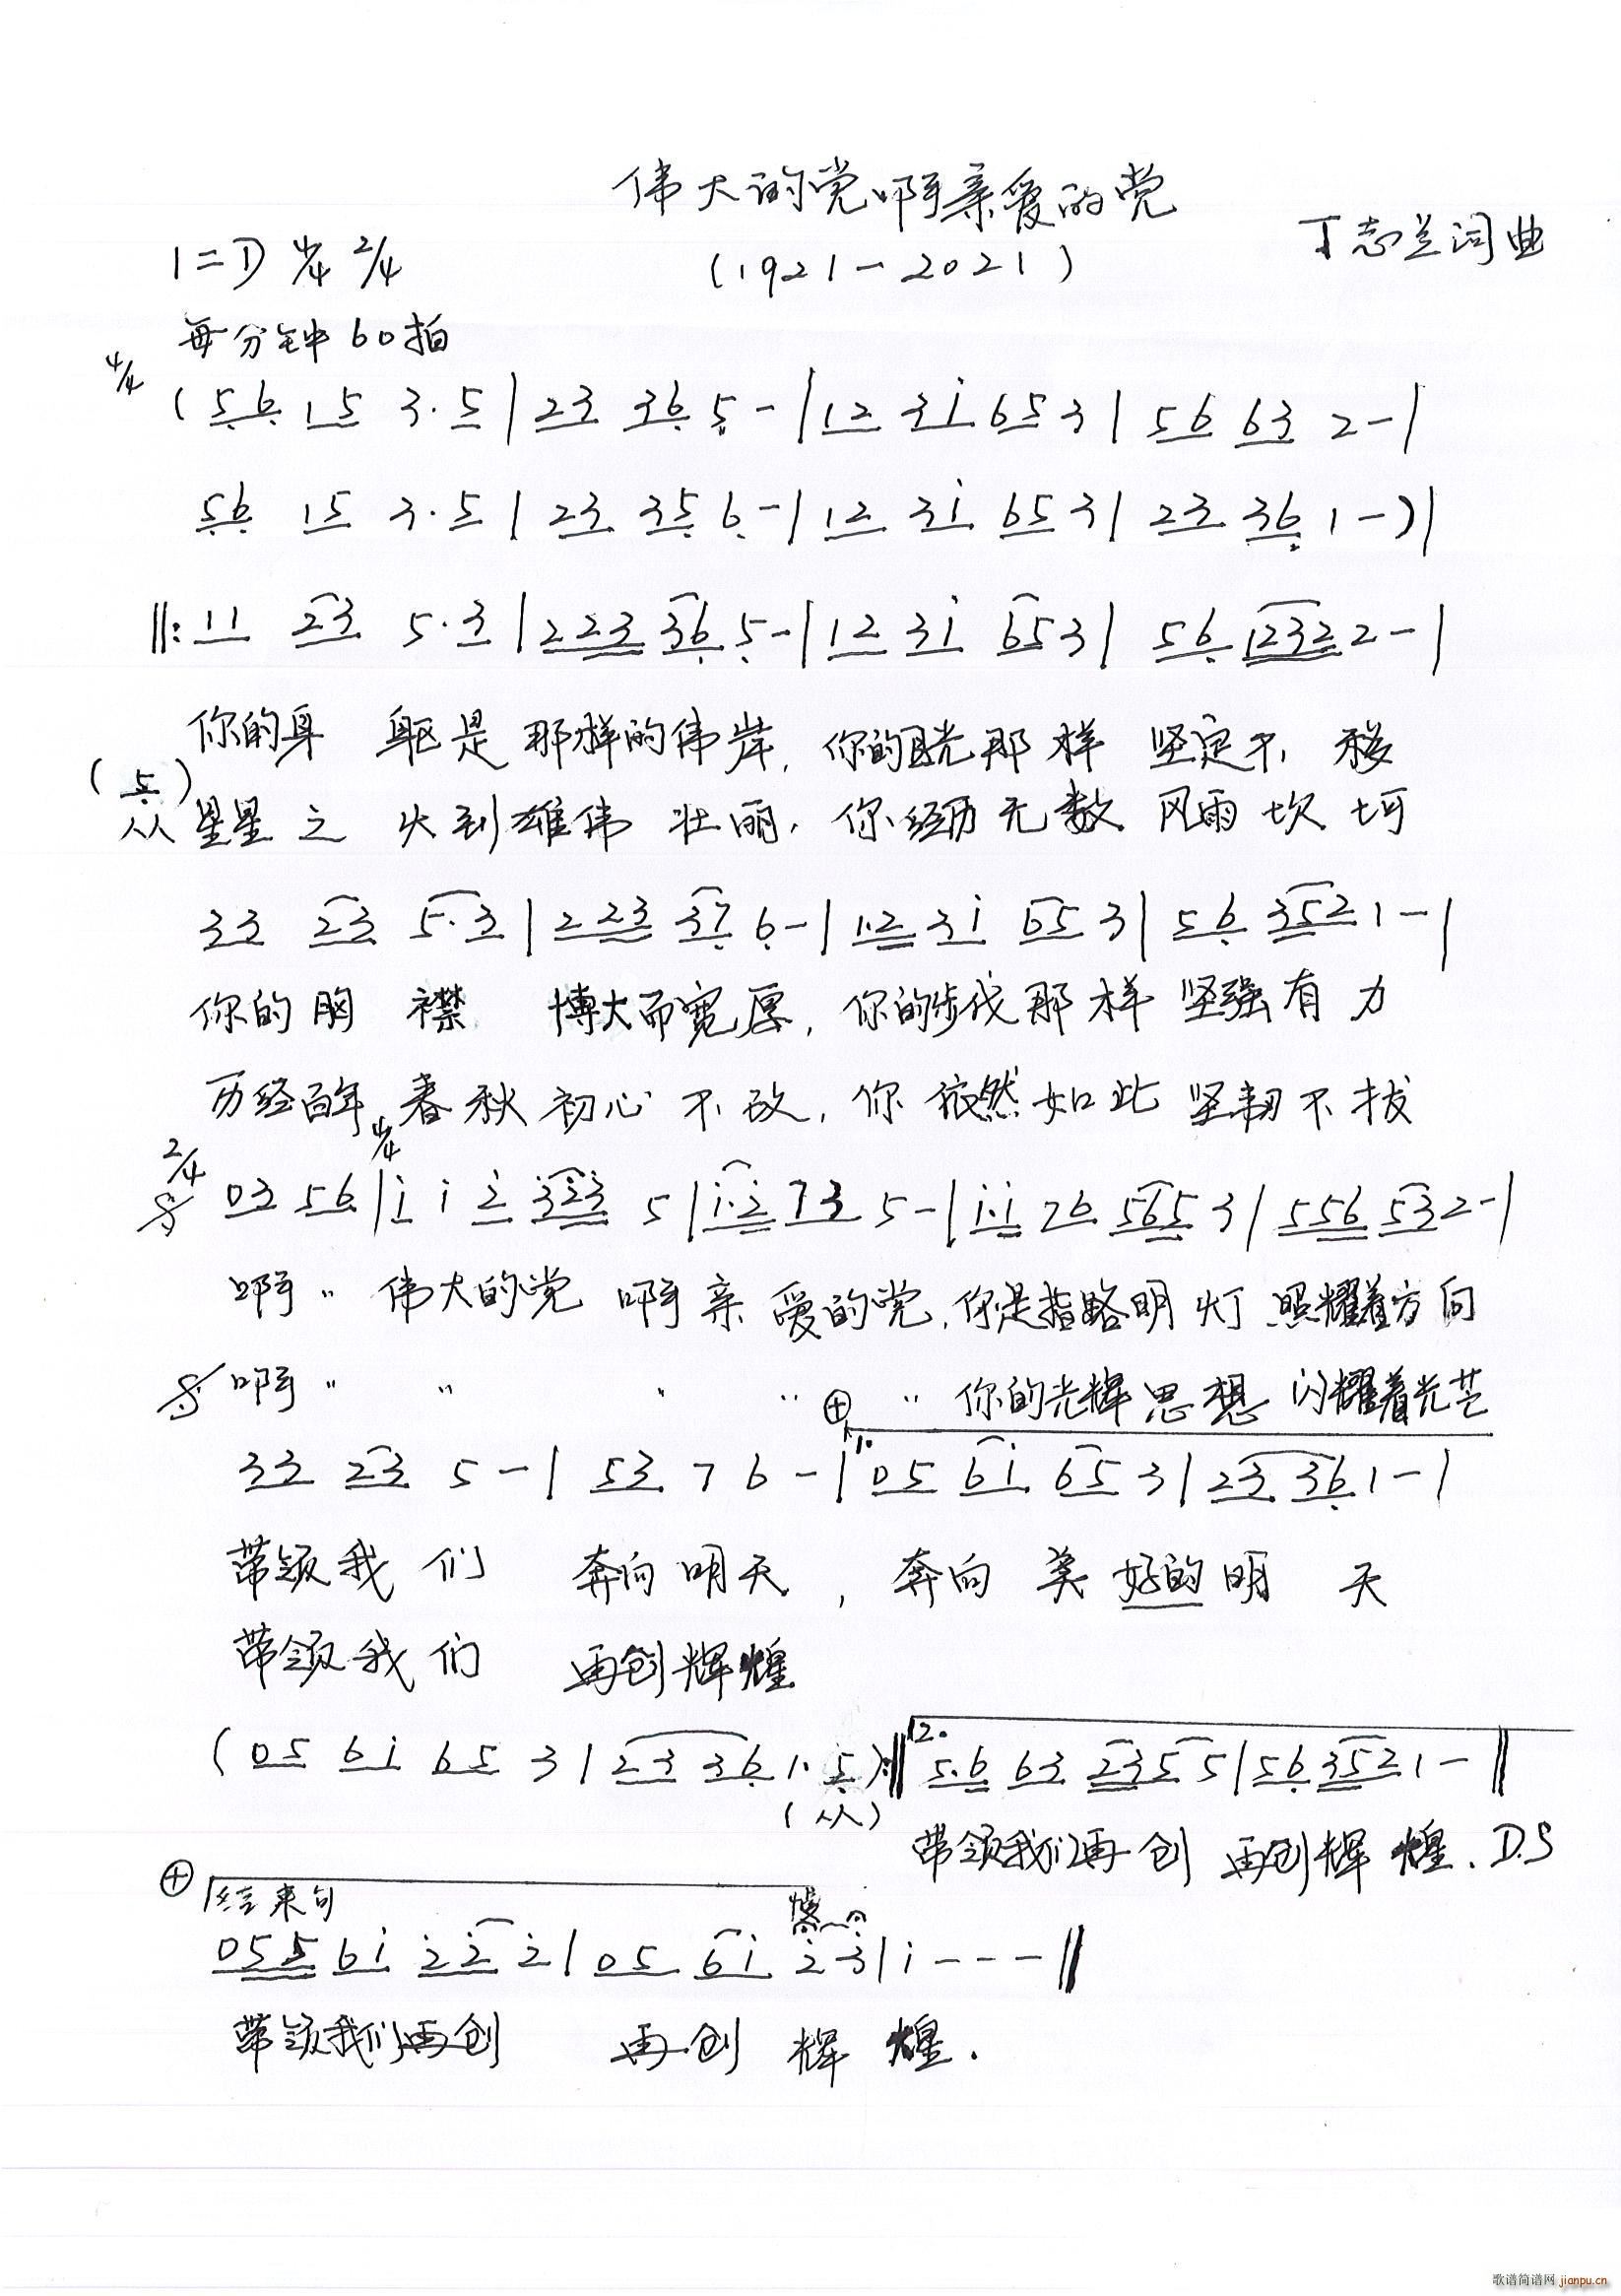 伟大的党啊亲爱的党
丁志兰词曲
1=D 4/4 2/4
(1921-2021)
每分钟60拍
4/4
(56 15 3·5|23 36 5-|12 3i 65 3|56 63 2-|
56 15 3·5|23 35 6-|12 3i 65 3|23 36 1-)|
‖:11 23 5·3|2 23 36 5-|12 3i 65 3|56 1232 2-|
你的身 躯是那样的伟岸,你的目光那样 坚定不 移
(5)
从 星星之 火到雄伟 壮丽,你经历无数 风雨坎 坷
33 23 5·3|2 23 37 6-|1·2 3i 65 3|56 352 1-|
你的胸 襟 博大而宽厚,你的步伐那样 坚强有 力
历经百年 春秋初心 不改,你 依然如此 坚韧不拔
2/4 4/4
03 56|i i 2 323 5|i·2 73 5-|i·i 76 565 3|5 56 53 2-|
啊〃 伟大的党 啊亲 爱的党,你是指路明 灯 照耀着方向
啊〃 〃 〃 〃 〃 你的光辉思想 闪耀着光芒
33 23 5-|53 7 6-|1. 05 6i 65 3|23 36 1-|
带领我 们 奔向明天,奔向 美好的明 天
带领我 们 再创辉煌
(05 6i 65 3|23 36 1·5):‖2. 5·6 63 235 5|56 352 1-‖
(从)
带领我们再创 再创辉 煌. D.S
结束句
慢
055 6i 22 2|05 6i 2 3|i---‖
带领我们再创 再创 辉 煌.
歌谱简谱网 jianpu.cn